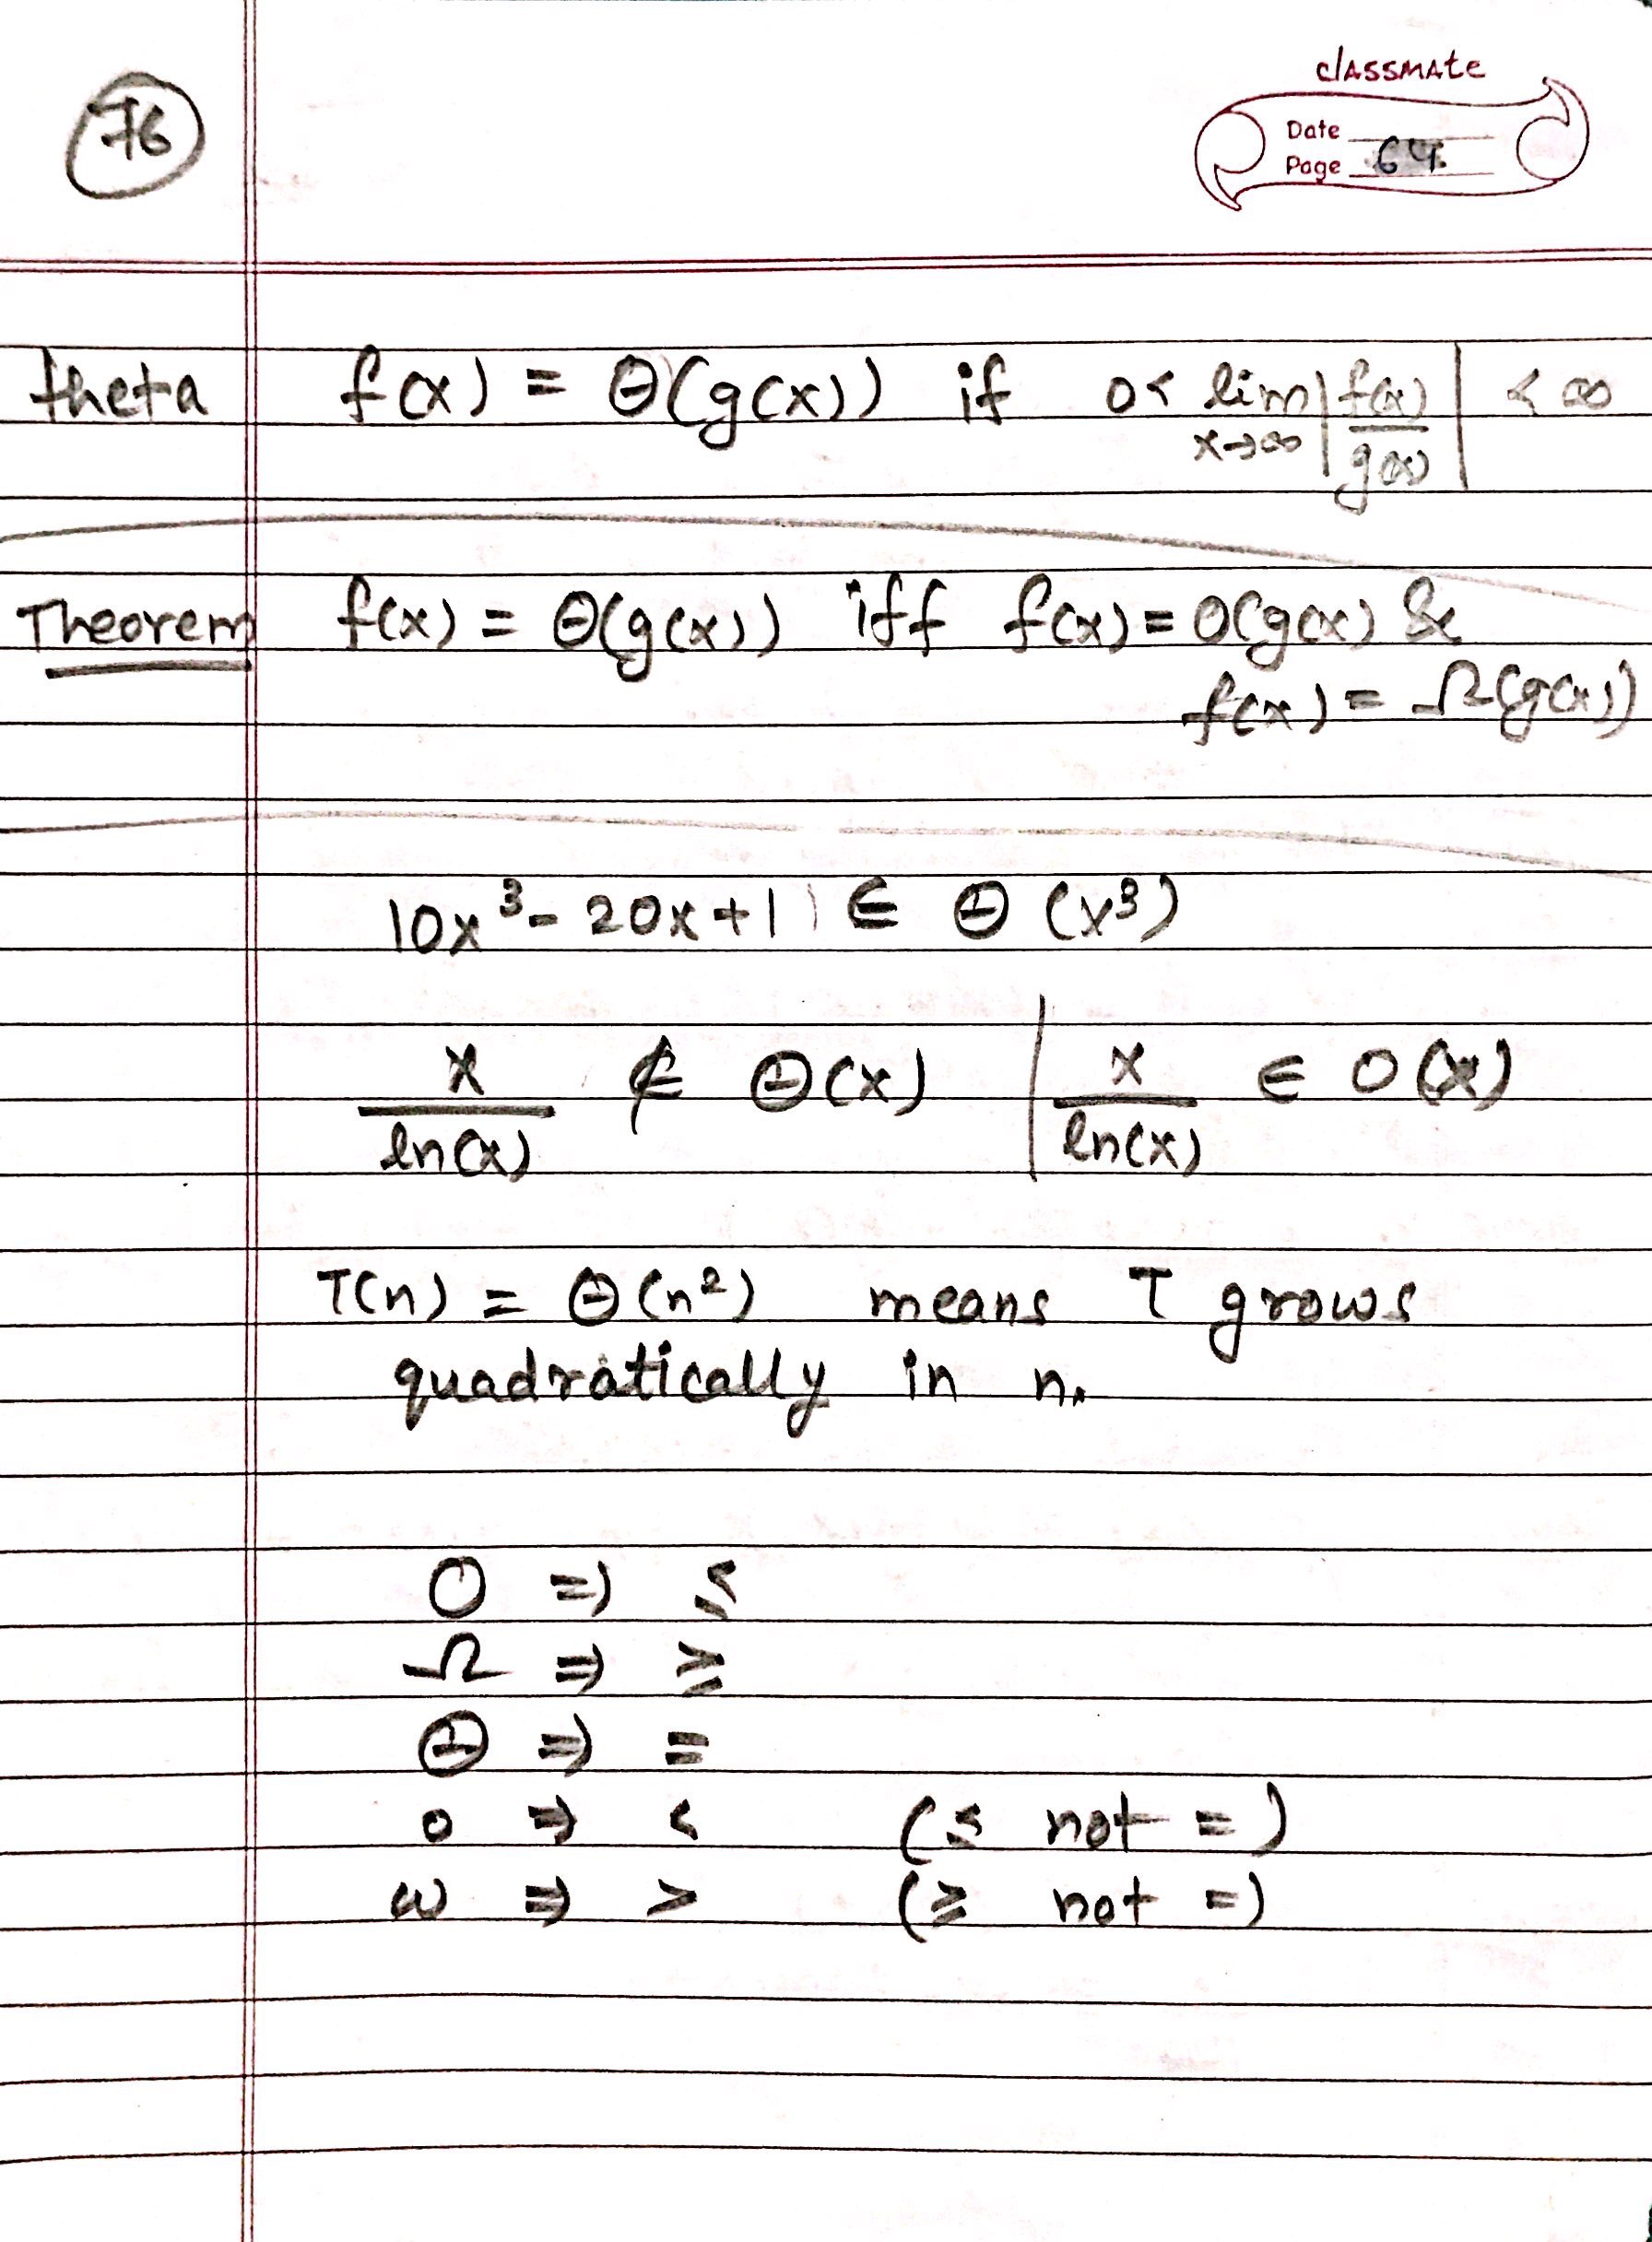 76
classmate
Date
Page 64.
theta f(x) = Θ(g(x)) if 0 < lim x→∞ | f(x) / g(x) | < ∞
Theorem f(x) = Θ(g(x)) iff f(x) = O(g(x) &
f(x) = Ω(g(x))
10x³ - 20x + 1 ∈ Θ (x³)
x / ln(x) ∉ Θ(x) | x / ln(x) ∈ O(x)
T(n) = Θ(n²) means T grows
quadratically in n.
O ⇒ ≤
Ω ⇒ ≥
Θ ⇒ =
o ⇒ < (≤ not =)
ω ⇒ > (≥ not =)